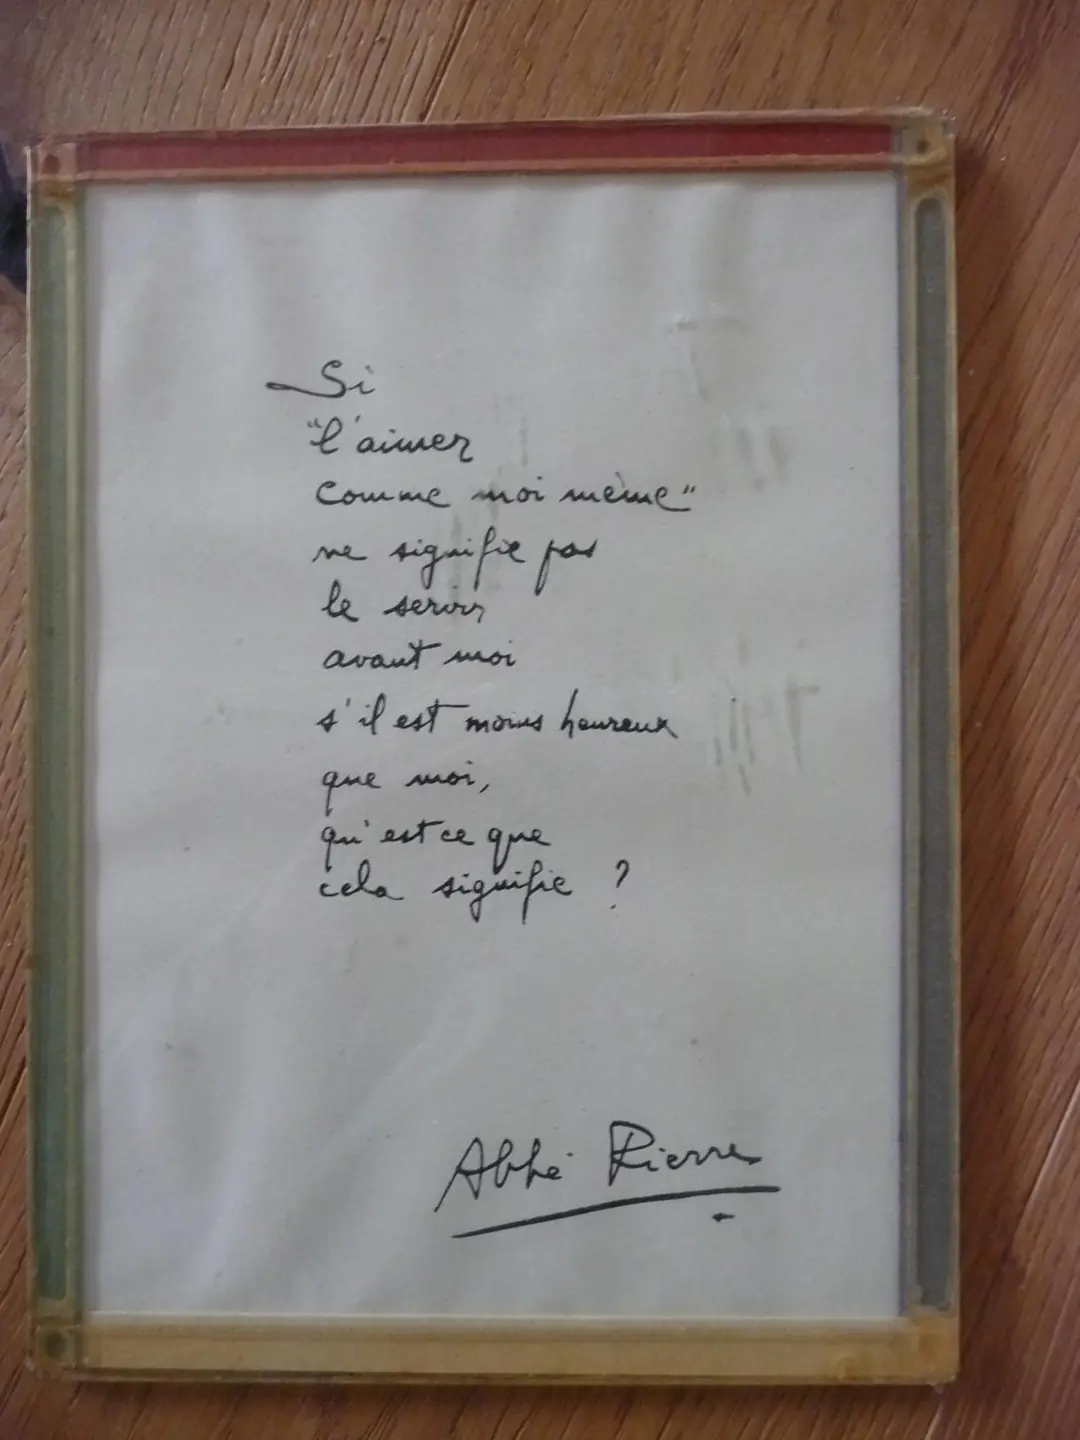 Si
"l'aimer
comme moi même"
ne signifie pas
le servir
avant moi
s'il est moins heureux
que moi,
qu'est ce que
cela signifie ?
Abbé Pierre